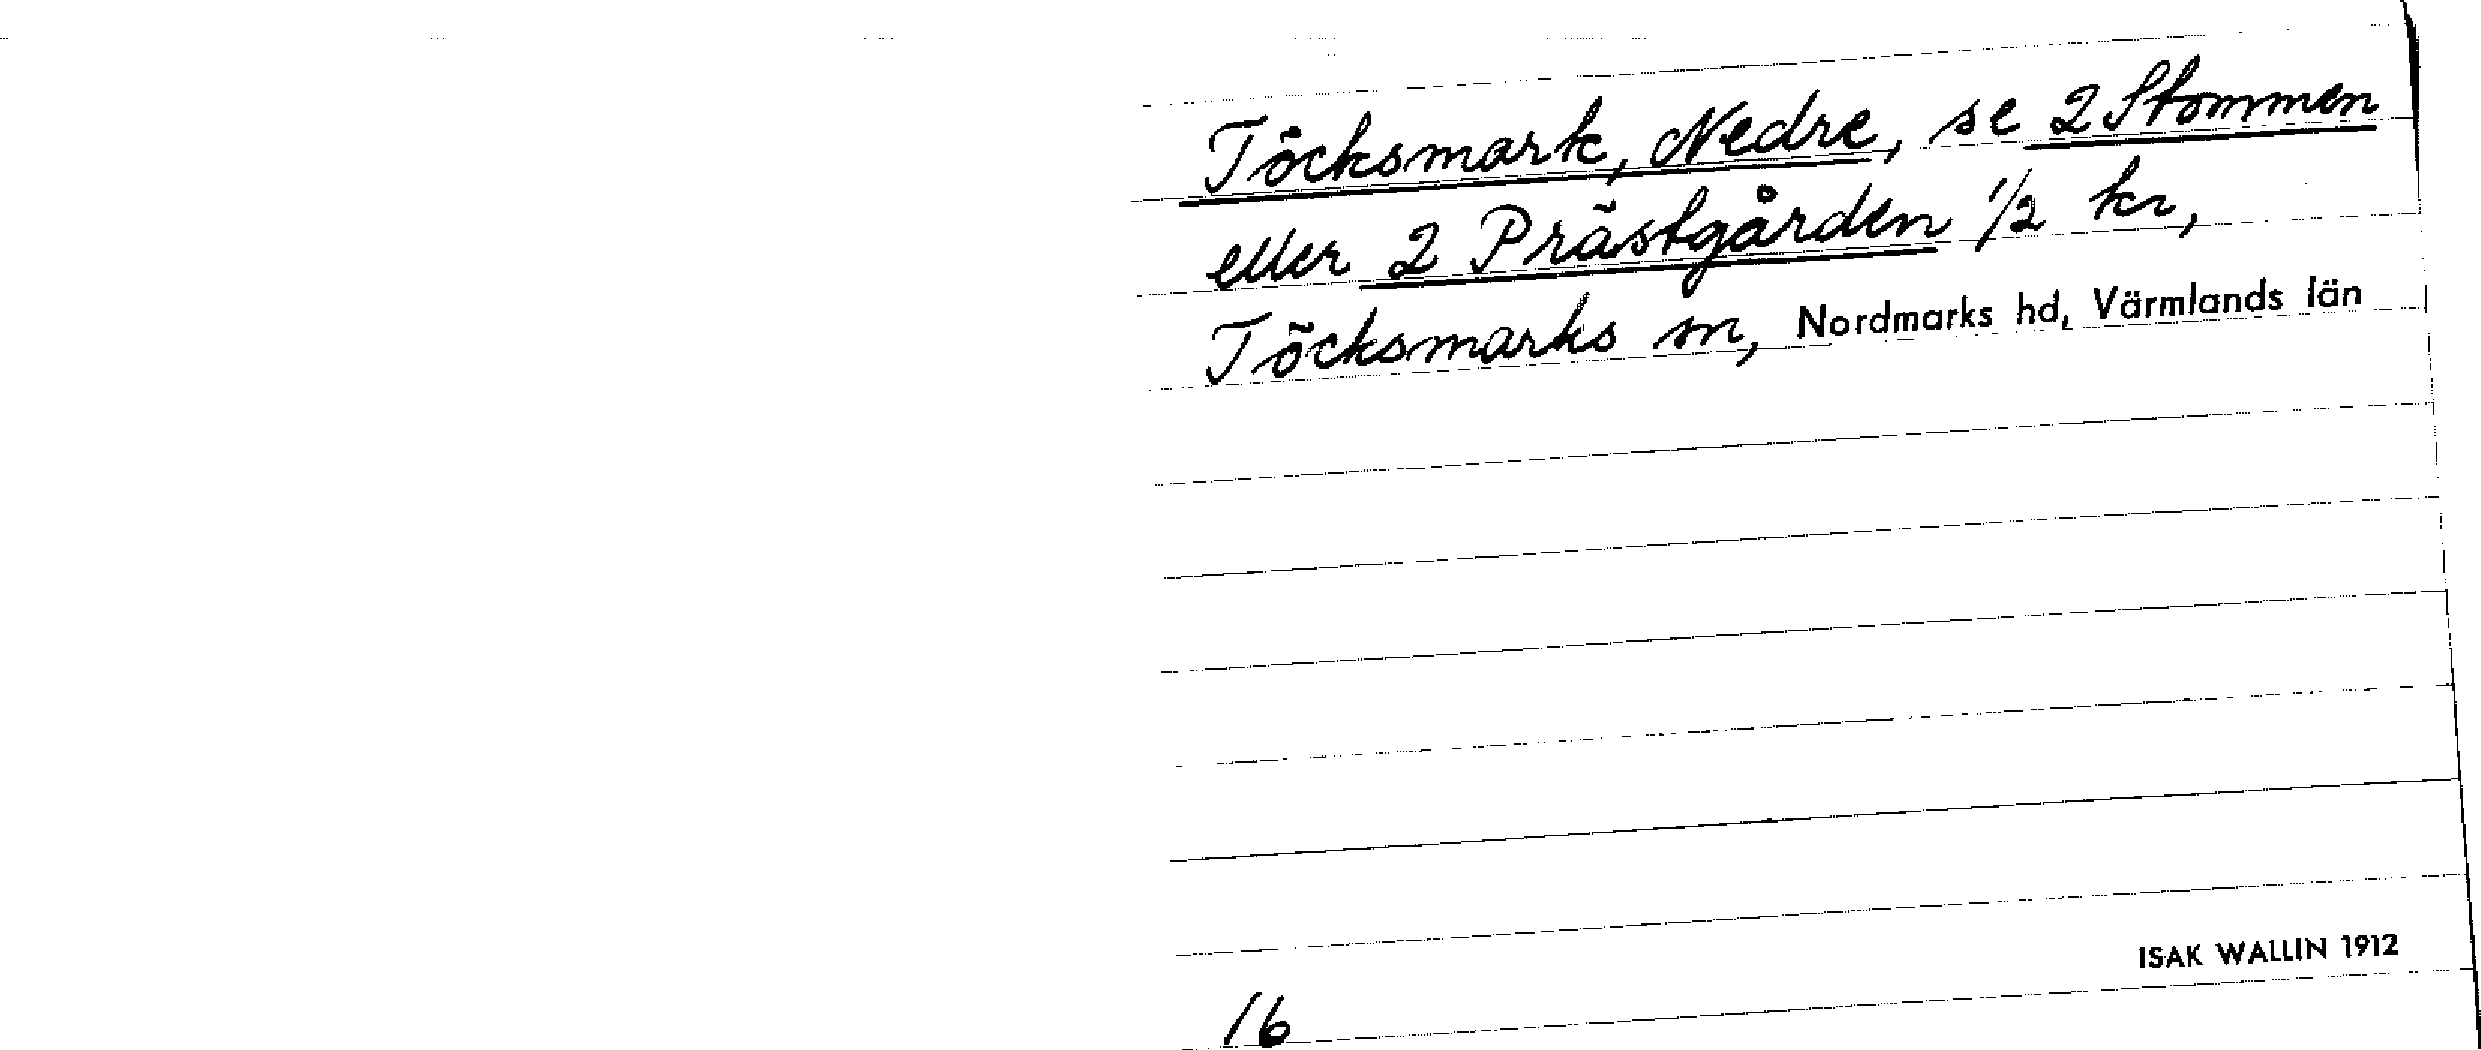 Töcksmark, Nedre, se 2 Stommen
eller 2 Prästgården 1/2 kr,
Töcksmarks sn, Nordmarks hd, Värmlands län
ISAK WALLIN 1912
16